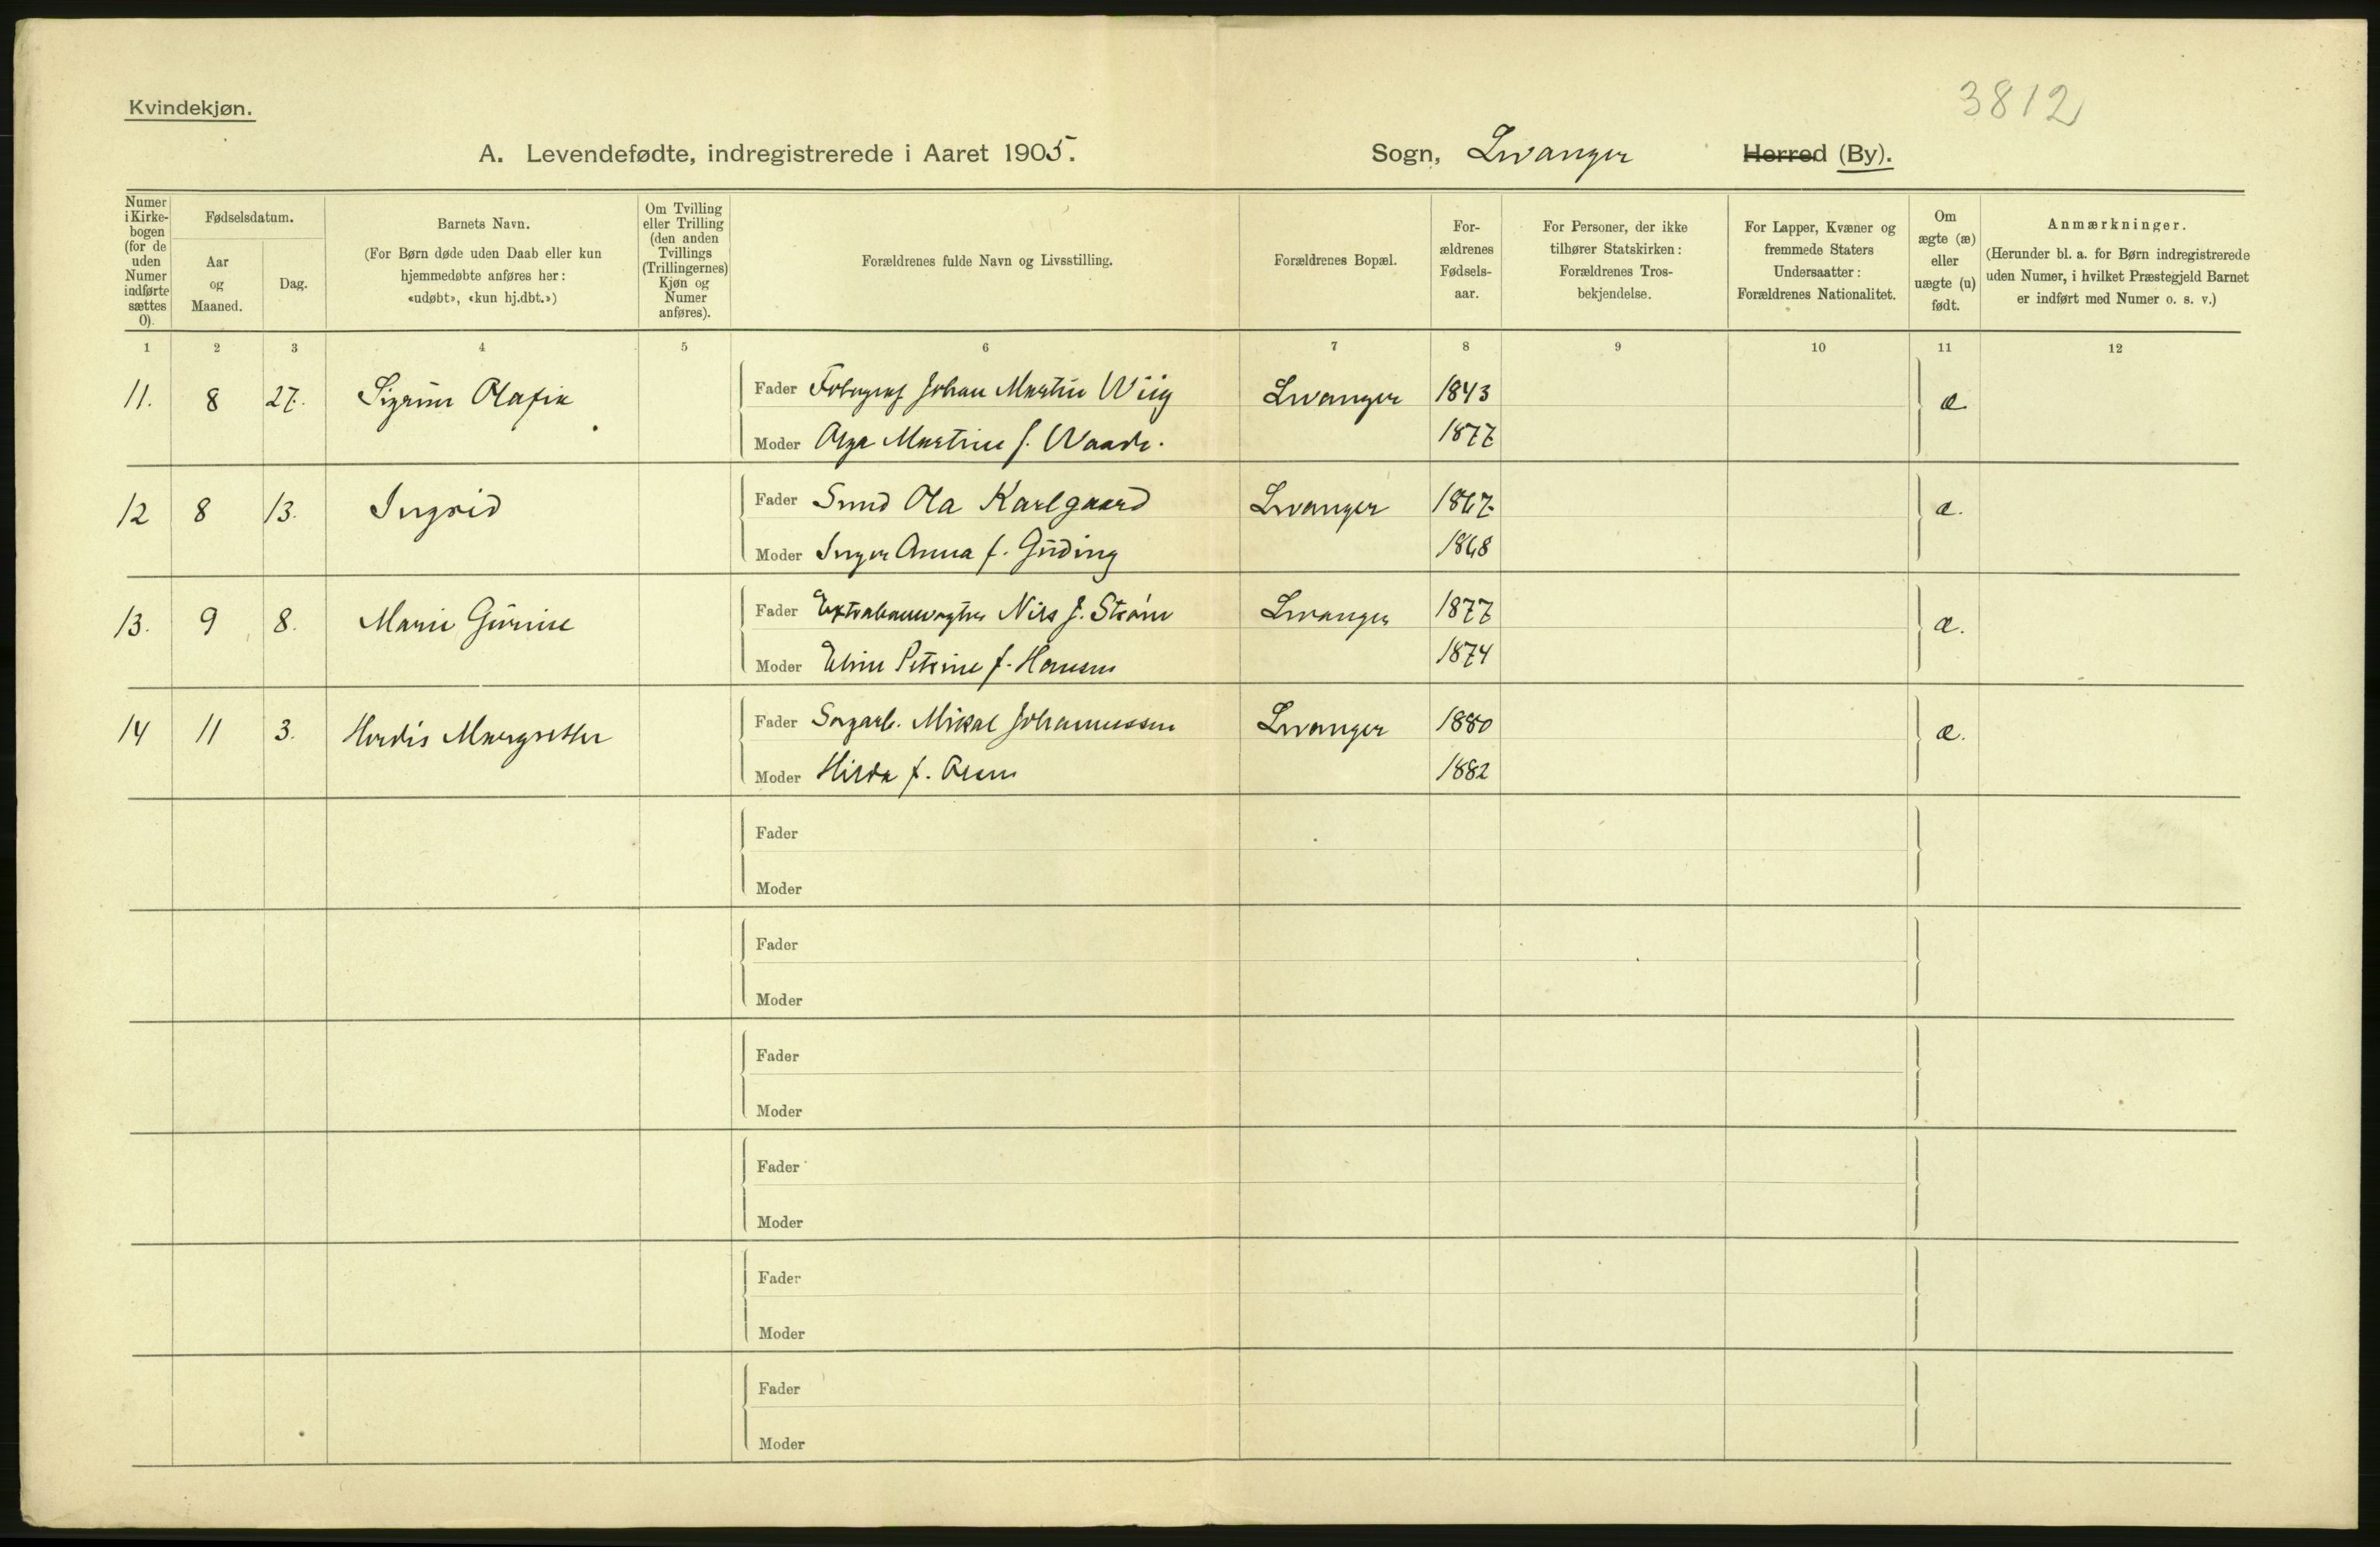 Kvindekjøn.
3812
A. Levendefødte, indregistrerede i Aaret 1905. Sogn, Levanger Herred (By).
Numer i Kirkebogen (for de uden Numer indførte sættes 0).
Fødselsdatum.
Aar og Maaned.
Dag.
Barnets Navn.
(For Børn døde uden Daab eller kun hjemmedøbte anføres her: «udøbt», «kun hj.dbt.»)
Om Tvilling eller Trilling (den anden Tvillings (Trillingernes) Kjøn og Numer anføres).
Forældrenes fulde Navn og Livsstilling.
Forældrenes Bopæl.
For-ældrenes Fødsels-aar.
For Personer, der ikke tilhører Statskirken: Forældrenes Tros-bekjendelse.
For Lapper, Kvæner og fremmede Staters Undersaatter: Forældrenes Nationalitet.
Om ægte (æ) eller uægte (u) født.
Anmærkninger.
(Herunder bl. a. for Børn indregistrerede uden Numer, i hvilket Præstegjeld Barnet er indført med Numer o. s. v.)
1 2 3 4 5 6 7 8 9 10 11 12
11. 8 27. Sigrun Olafia Fader Fotograf Johan Martin Wiig Levanger 1843 æ
Moder Olga Martine f. Waade. 1877
12 8 13. Ingrid Fader Smed Ola Karlgaard Levanger 1867 æ.
Moder Inger Anna f. Güding 1868
13. 9 8. Marie Gurine Fader Extrabanevogter Nils J. Strøm Levanger 1877 æ.
Moder Eline Petrine f. Hansen 1874
14 11 3. Herdis Margrethe Fader Sagarb. Mikal Johannessen Levanger 1880 æ.
Moder Hilda f. Olsen 1882
Fader
Moder
Fader
Moder
Fader
Moder
Fader
Moder
Fader
Moder
Fader
Moder